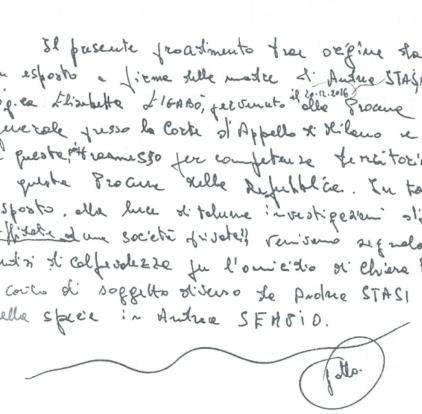 Il presente procedimento trae origine da
esposto a firma della madre di Andrea STASI
Elisabetta LIGABÒ, pervenuto il 20.12.2016 alla Procura
Generale presso la Corte d'Appello di Milano e
questa, trasmesso per competenza territoria
questa Procura della Repubblica. In ta
sposto, alla luce di talune investigazioni di
una società privata, venivano segnala
indizi di colpevolezza per l'omicidio di Chiara
carico di soggetto diverso da Andrea STASI
ella specie in Andrea SEMPIO.